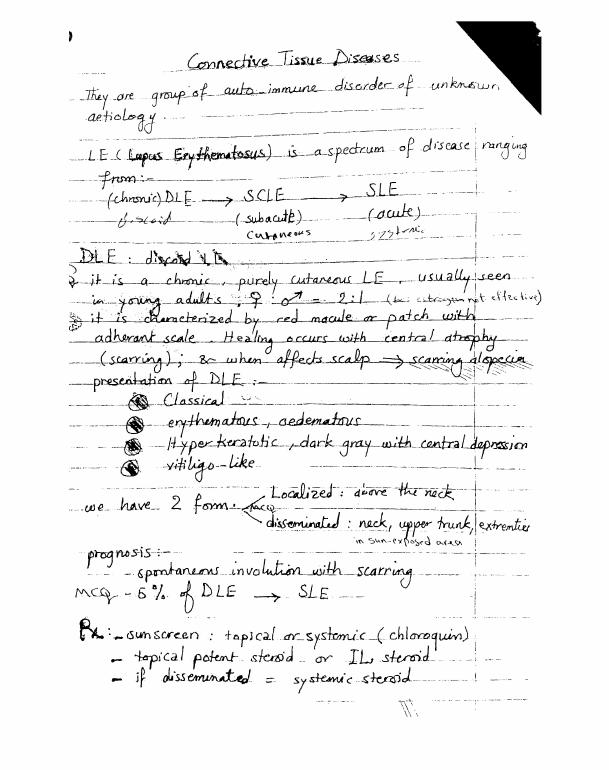 Connective Tissue Diseases
They are group of auto-immune disorder of unknown
aetiology.
LE (Lupus Erythematosus) is a spectrum of disease ranging
from:-
(chronic) DLE → SCLE → SLE
discoid (subacute) (acute)
cutaneous systemic
DLE: discoid LE
it is a chronic, purely cutaneous LE, usually seen
in young adults; ♀:♂ = 2:1 (estrogen not effective)
it is characterized by red macule or patch with
adherant scale. Healing occurs with central atrophy
(scarring); & when affects scalp → scarring alopecia
presentation of DLE:-
Classical
erythematous, oedematous
Hyperkeratotic, dark gray with central depression
vitiligo-like
we have 2 form. Localized: above the neck
MCQ
disseminated: neck, upper trunk, extremties
in sun-exposed area
prognosis:-
- spontaneous involution with scarring
MCQ - 5% of DLE → SLE
Rx:- sunscreen: topical or systemic (chloroquin)
- topical potent steroid or IL steroid
- if disseminated = systemic steroid